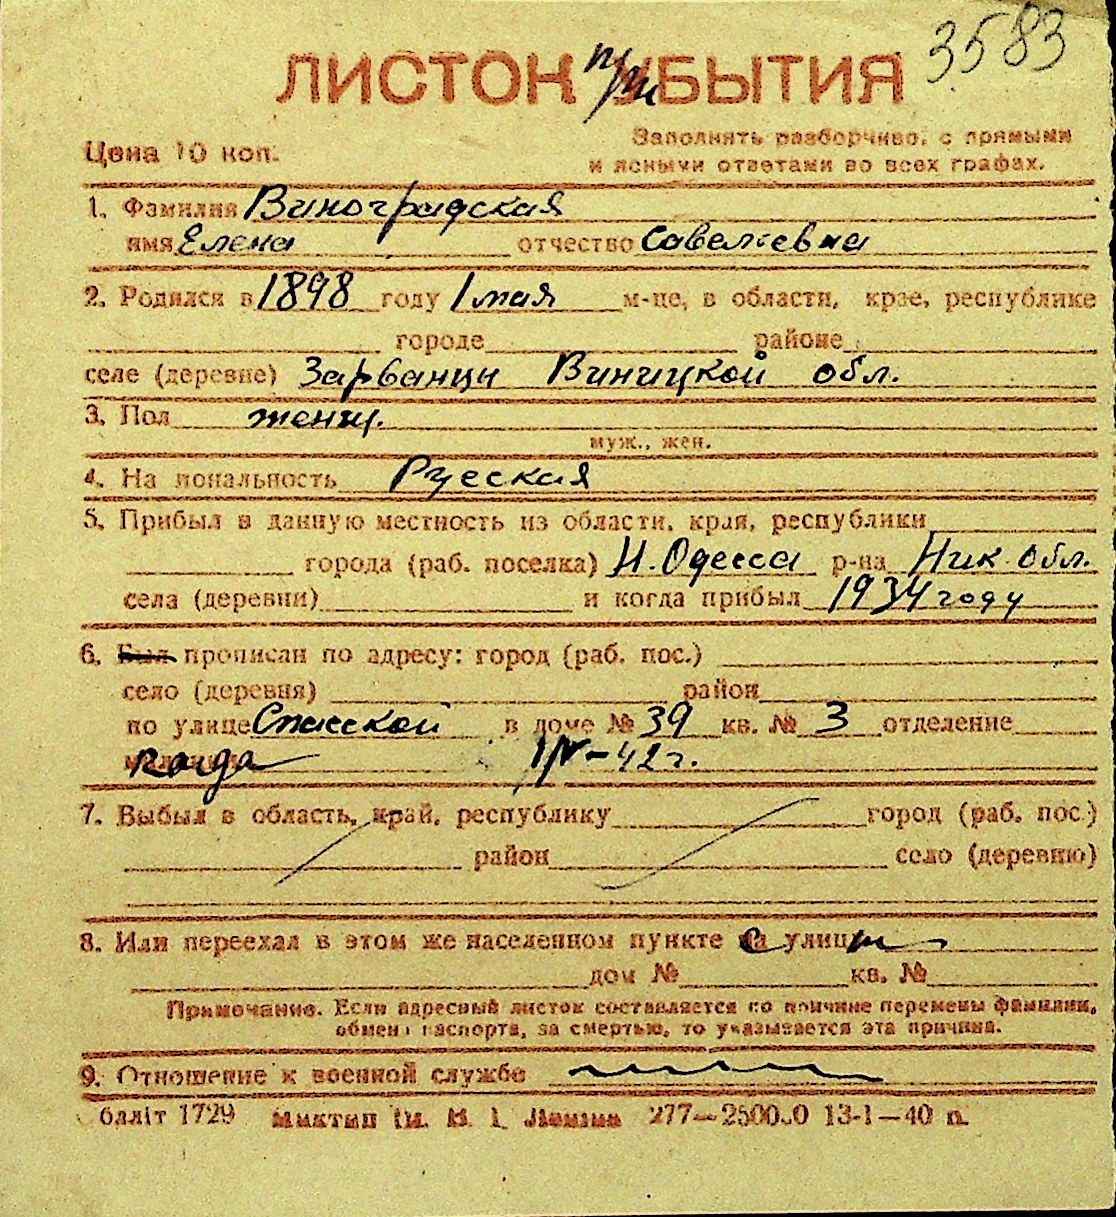 3583
ЛИСТОК УБЫТИЯ
Цена 10 коп.
Заполнять разборчиво, с прямыми
и ясными ответами во всех графах.
1. Фамилия Виноградская
имя Елена отчество Савельевна
2. Родился в 1898 году 1 мая м-це, в области, крае, республике
городе районе
селе (деревне) Зарванци Виницкой обл.
3. Пол женщ.
муж., жен.
4. Национальность Русская
5. Прибыл в данную местность из области, края, республики
города (раб. поселка) Н. Одесса р-на Ник. обл.
села (деревни) и когда прибыл 1934 году
6. Был прописан по адресу: город (раб. пос.)
село (деревня) район
по улице Спасской в доме № 39 кв. № 3 отделение
когда IV-42 г.
7. Выбыл в область, край, республику город (раб. пос.)
район село (деревню)
8. Или переехал в этом же населенном пункте с улицы
дом № кв. №
Примечание. Если адресный листок составляется по причине перемены фамилии,
обмена паспорта, за смертью, то указывается эта причина.
9. Отношение к военной службе
блліт 1729 277—25000 13-1—40 п.